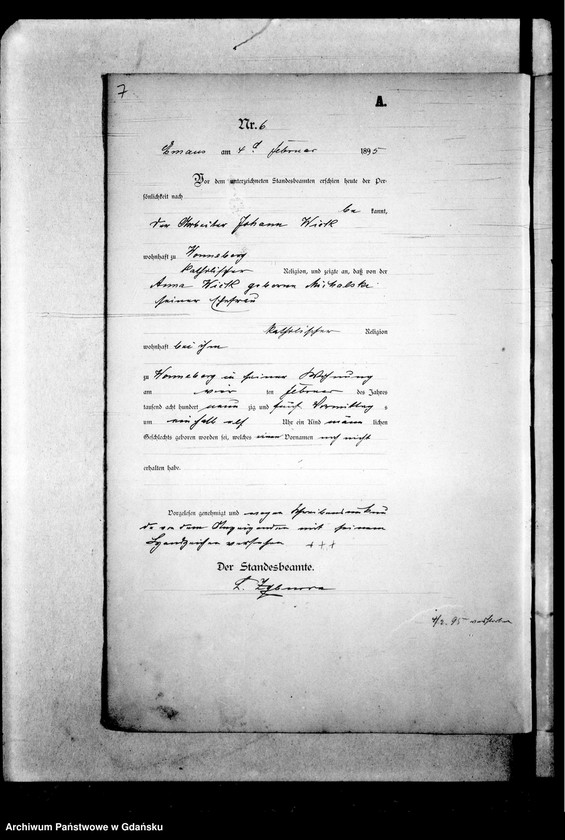 7
A.
Nr. 6
Emaus am 4 t Februar 1895
Vor dem unterzeichneten Standesbeamten erschien heute der Per-
sönlichkeit nach
be kannt,
der Arbeiter Johann Wick
wohnhaft zu Wonneberg
katholischer Religion, und zeigte an, daß von der
Anna Wick geborene Michalski
seiner Ehefrau
katholischer Religion
wohnhaft bei ihm
zu Wonneberg in seiner Wohnung
am vier ten Februar des Jahres
tausend acht hundert neun zig und fünf Vormittag s
um ein halb elf Uhr ein Kind männ lichen
Geschlechts geboren worden sei, welches einen Vornamen noch nicht
erhalten habe.
Vorgelesen, genehmigt und wegen Schreibensunkun
de von dem Anzeigenden mit seinem
Handzeichen versehen + + +
Der Standesbeamte.
4/2. 95
Archiwum Państwowe w Gdańsku